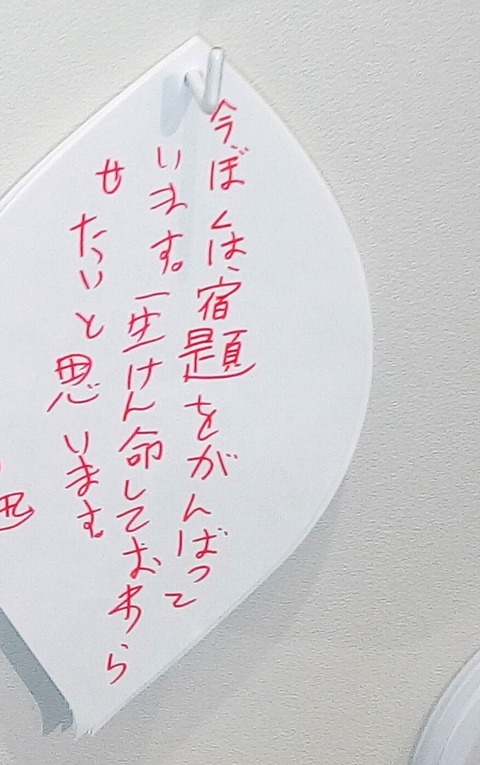 今、ぼくは、宿題をがんばって
います。一生けん命しておわら
せたいと思います。